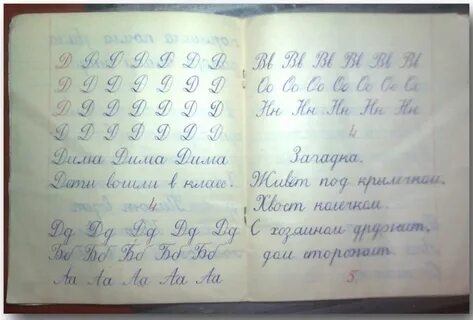 Д Д Д Д Д Д Д
Д Д Д Д Д Д Д
Д Д Д Д Д Д Д
Д Д Д Д Д Д Д
Дима Дима Дима
Дети вошли в класс.
4
Дд Дд Дд Дд Дд
Бб Бб Бб Бб Бб
Аа Аа Аа Аа Аа
Вв Вв Вв Вв Вв Вв
Оо Оо Оо Оо Оо Оо Оо
Нн Нн Нн Нн Нн
4
Загадка.
Живёт под крылечком.
Хвост колечком.
С хозяином дружит,
дом сторожит.
5